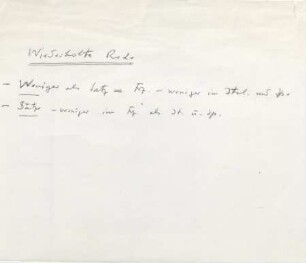 Wiederholte Rede
- Weniger als Satz - Frz. - weniger im Ital. und Sp.
- Sätze - weniger im Frz. als It. u. Sp.